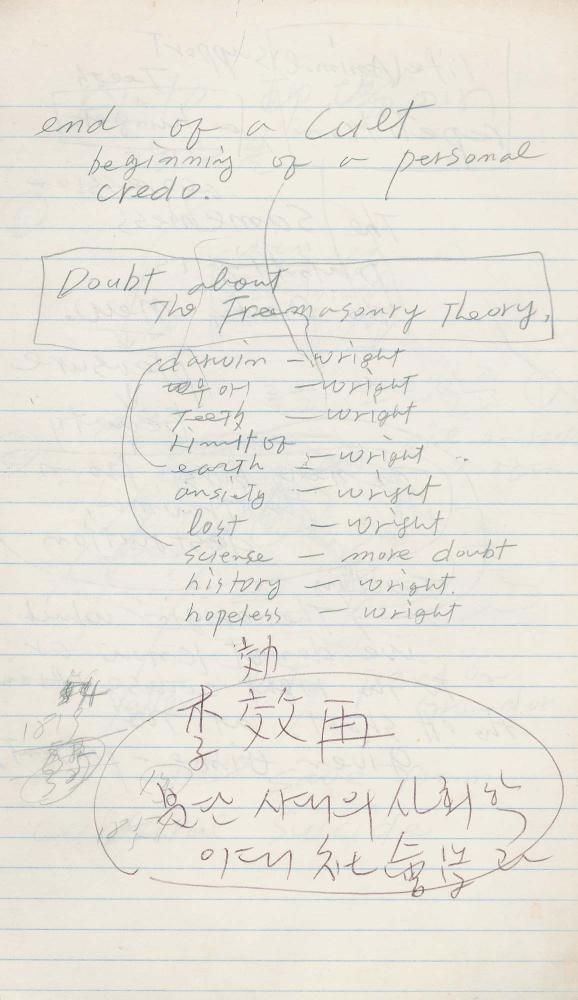 end of a cult
beginning of a personal
credo.
Doubt about
The Freemasonry Theory,
darwin — wright
— wright
Teeth — wright
Limit of
earth — wright
ansiety — wright
lost — wright
sciense — more doubt
history — wright.
hopeless — wright
効
李效再
분단 사대의 사회학
이대